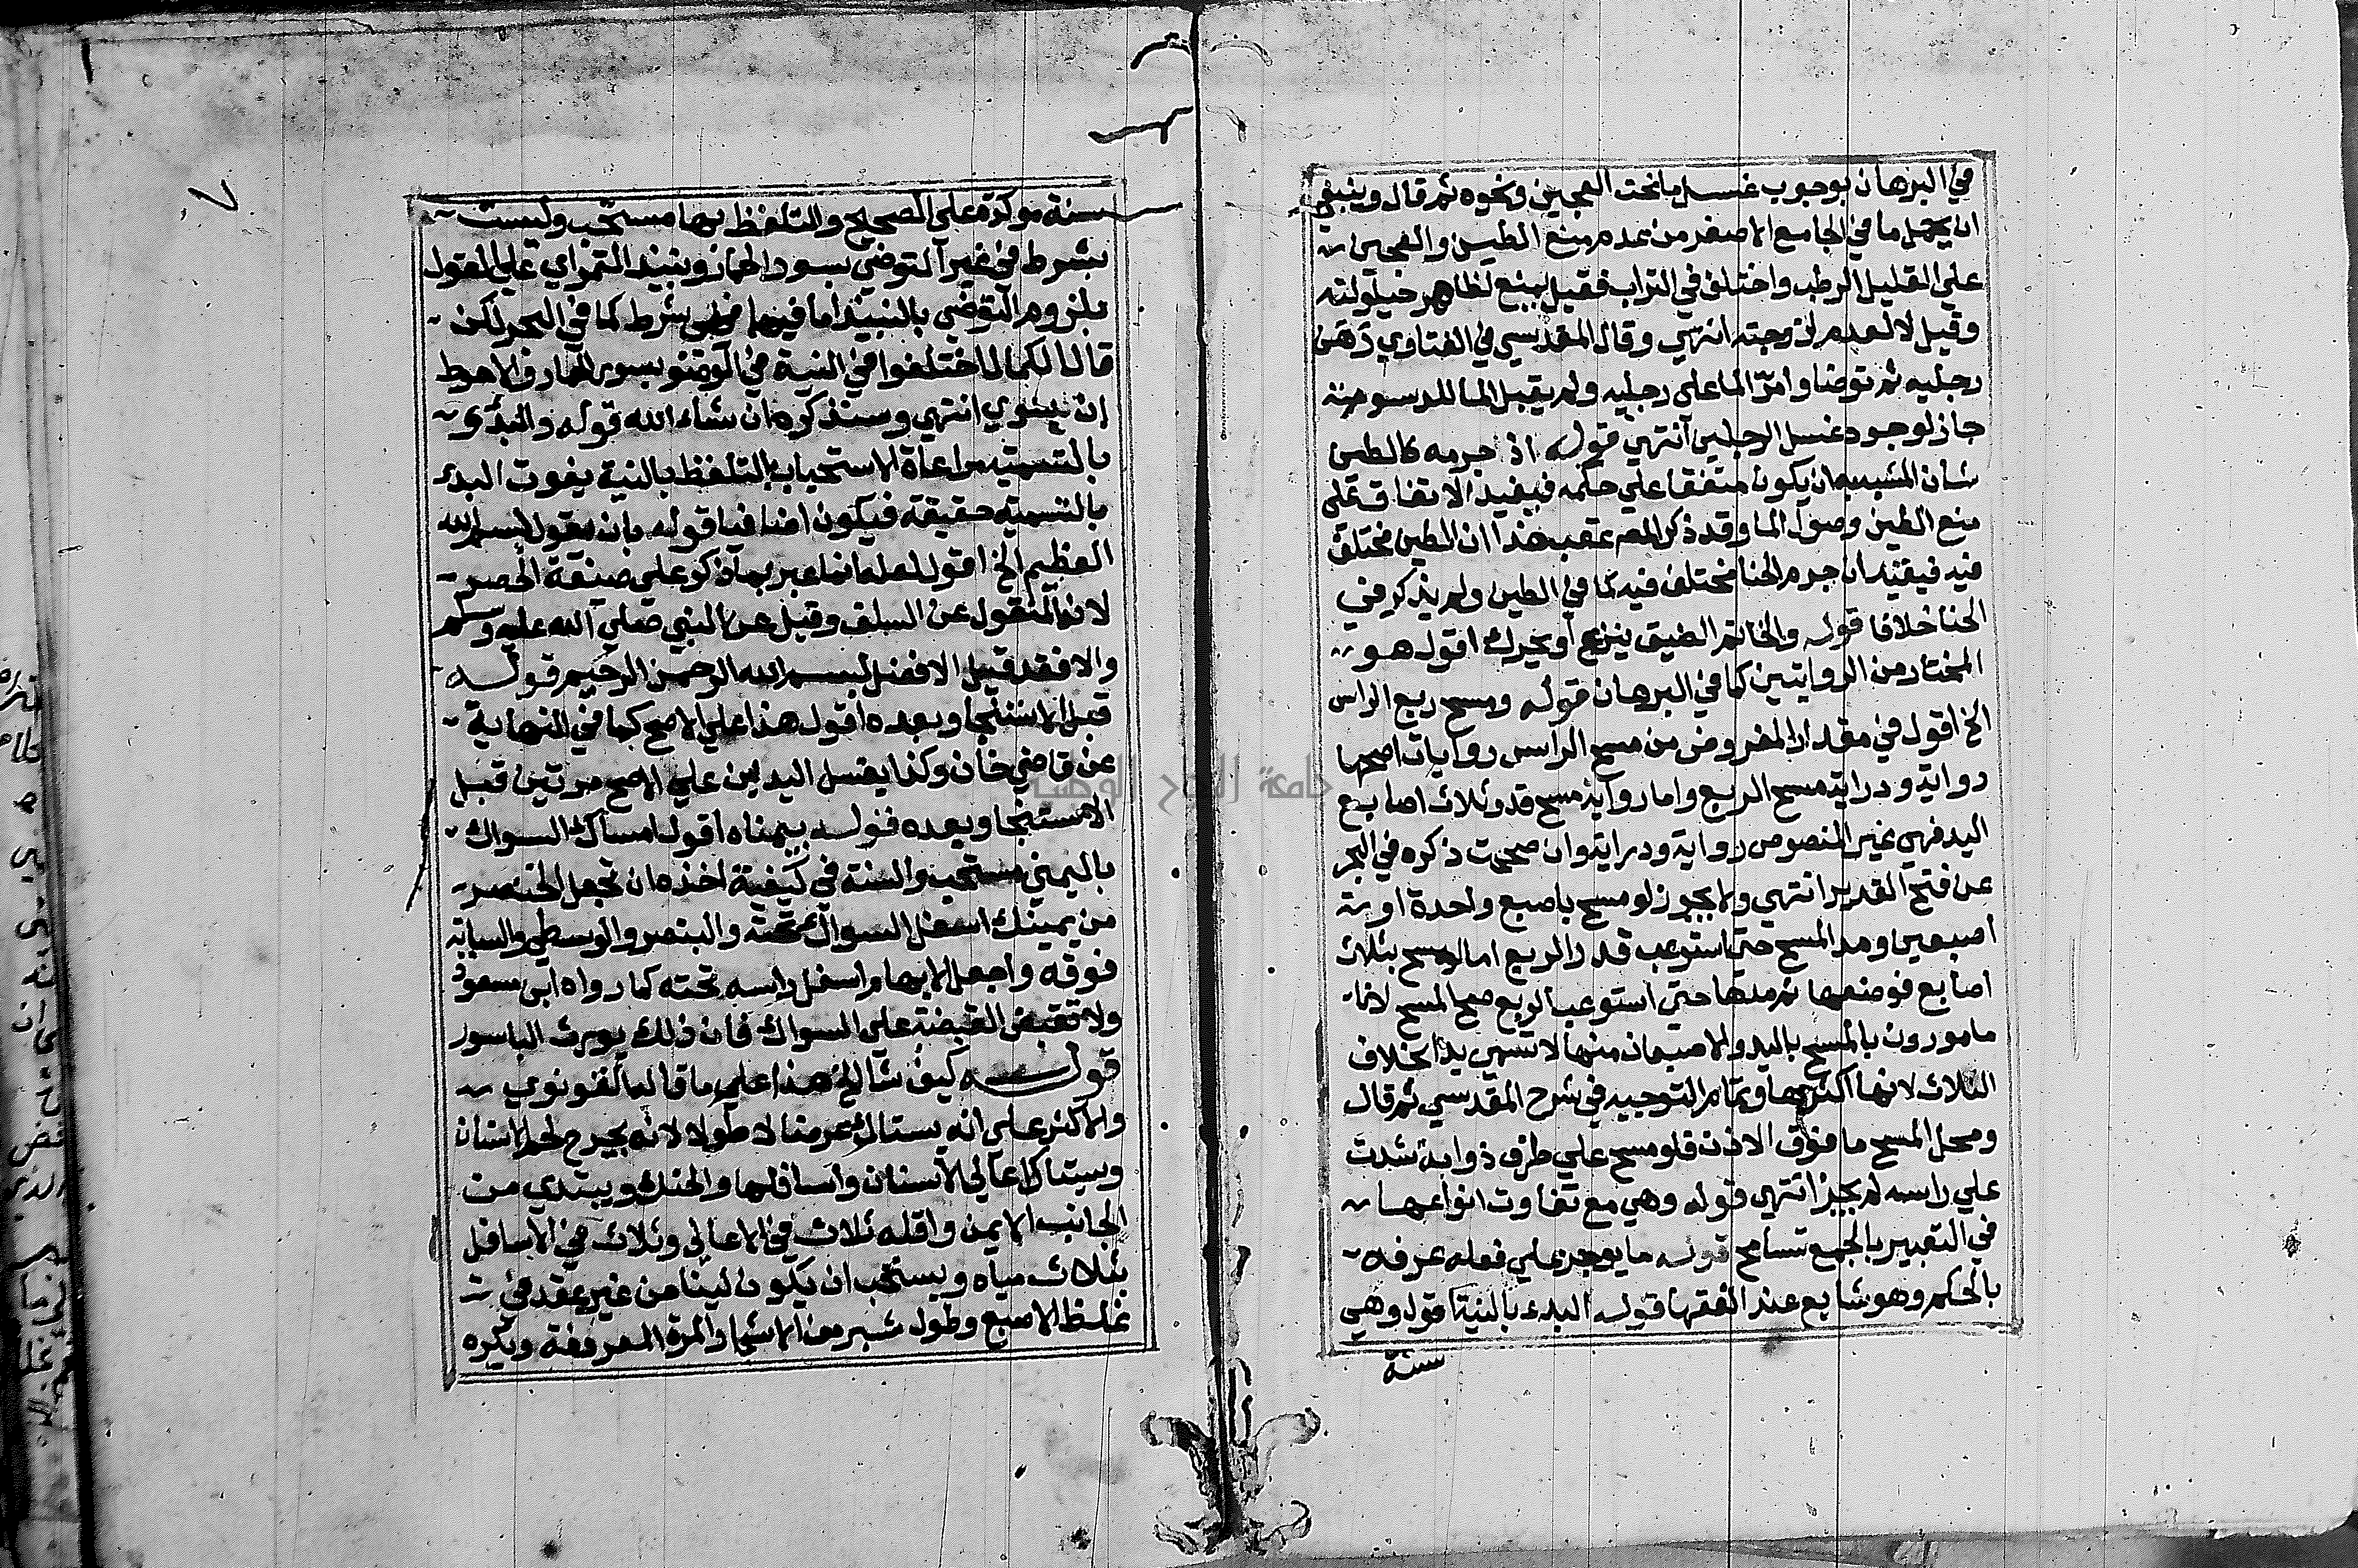 في البرهان بوجوب غسل ما تحت العجين ونحوه ثم قال وينبغي
ان يحمل ما في الجامع الاصغر من عدم منع الطين والعجين
علي القليل الرطب واختلف في التراب فقيل يمنع لظاهر حيلولته
وقيل لا لعدم لزوجته انتهي وقال المقدسي في الفتاوي دهن
رجليه ثم توضا وامرّ الما علي رجليه ولم يقبل الما للدسومة
جاز لوجود غسل الرجلين انتهي قوله اذ جرمه كالطين
شان المشبه به ان يكون متفقا علي حكمه فيفيد الاتفاق علي
منع الطين وصول الما وقد ذكر المص عقب هذا ان الطين مختلف
فيه فيفيد ان جرم الحنا مختلف فيه كما في الطين ولم يذكر في
الحنا خلافا قوله والخاتم الضيق ينزع او يحرك اقول هو
المختار من الروايتين كما في البرهان قوله ومسح ربع الراس
الخ اقول في مقدار المفروض من مسح الراس روايات اصحها
رواية ودراية مسح الربع واما رواية مسح قدر ثلاث اصابع
اليد فهي غير المنصوص رواية ودراية وان صححت ذكره في البحر
عن فتح القدير انتهي ولا يجوز لو مسح باصبع واحدة او
اصبعين ومد المسح حتي استوعب قدر الربع اما لو مسح بثلاث
اصابع فوضعها ثم مدها حتي استوعب الربع صح المسح لانا
مامورون بالمسح باليد والاصبعان منها لا تسمي يدا بخلاف
الثلاث لانها اكثرها وتمام التوجيه في شرح المقدسي ثم قال
ومحل المسح ما فوق الاذن فلو مسح علي طرف ذوابة شدت
علي راسه لم يجز انتهي قوله وهي مع تفاوت انواعها
في التعبير بالجمع تسامح قوله ما يوجر علي فعله عرفه
بالحكم وهو شايع عند الفقها قوله البدء بالنية اقول وهي
سنة
سنة موكدة علي الصحيح والتلفظ بها مستحب وليست
بشرط في غير التوضي بسور الحمار ونبيذ التمر اي علي القول
بلزوم التوضي بالنبيذ اما فيهما فهي شرط كما في البحر لكن
قال الكمال اختلفوا في النية في الوضوء بسور الحمار والاحوط
ان ينوي انتهي وسنذكره ان شاء الله قوله والبدء
بالتسمية مراعاة الاستحباب بالتلفظ بالنية يفوت البدء
بالتسمية حقيقة فيكون اضافيا قوله بان يقول بسم الله
العظيم الخ اقول لعله انما عبر بما ذكر علي صيغة الحصر
لانه المنقول عن السلف وقيل عن النبي صلي الله عليه وسلم
والا فقد قيل الافضل بسم الله الرحمن الرحيم قوله
قبل الاستنجا وبعده اقول هذا علي الاصح كما في النهاية
عن قاضي خان وكذا يغسل اليدين علي الاصح مرتين قبل
الاستنجا وبعده قوله بيمناه اقول امساك السواك
باليمني مستحب والسنة في كيفية اخذه ان تجعل الخنصر
من يمينك اسفل السواك تحته والبنصر والوسطي والسبابة
فوقه واجعل الابهام اسفل راسه تحته كما رواه ابن مسعود
ولا تقبض القبضة علي السواك فان ذلك يورث الباسور
قوله كيف شا الخ هذا علي ما قاله الغزنوي
والاكثر علي انه يستاك عرضا لا طولا لانه يجرح لحم الاسنان
ويستاك اعالي الاسنان واسافلها والحنك ويبتدي من
الجانب الايمن واقله ثلاث في الاعالي وثلاث في الاسافل
بثلاث مياه ويستحب ان يكون لينا من غير عقد في
غلظ الاصبع وطول شبر من الاشجار المرة المعروفة ويكره
جامعة النجاح الوطنية